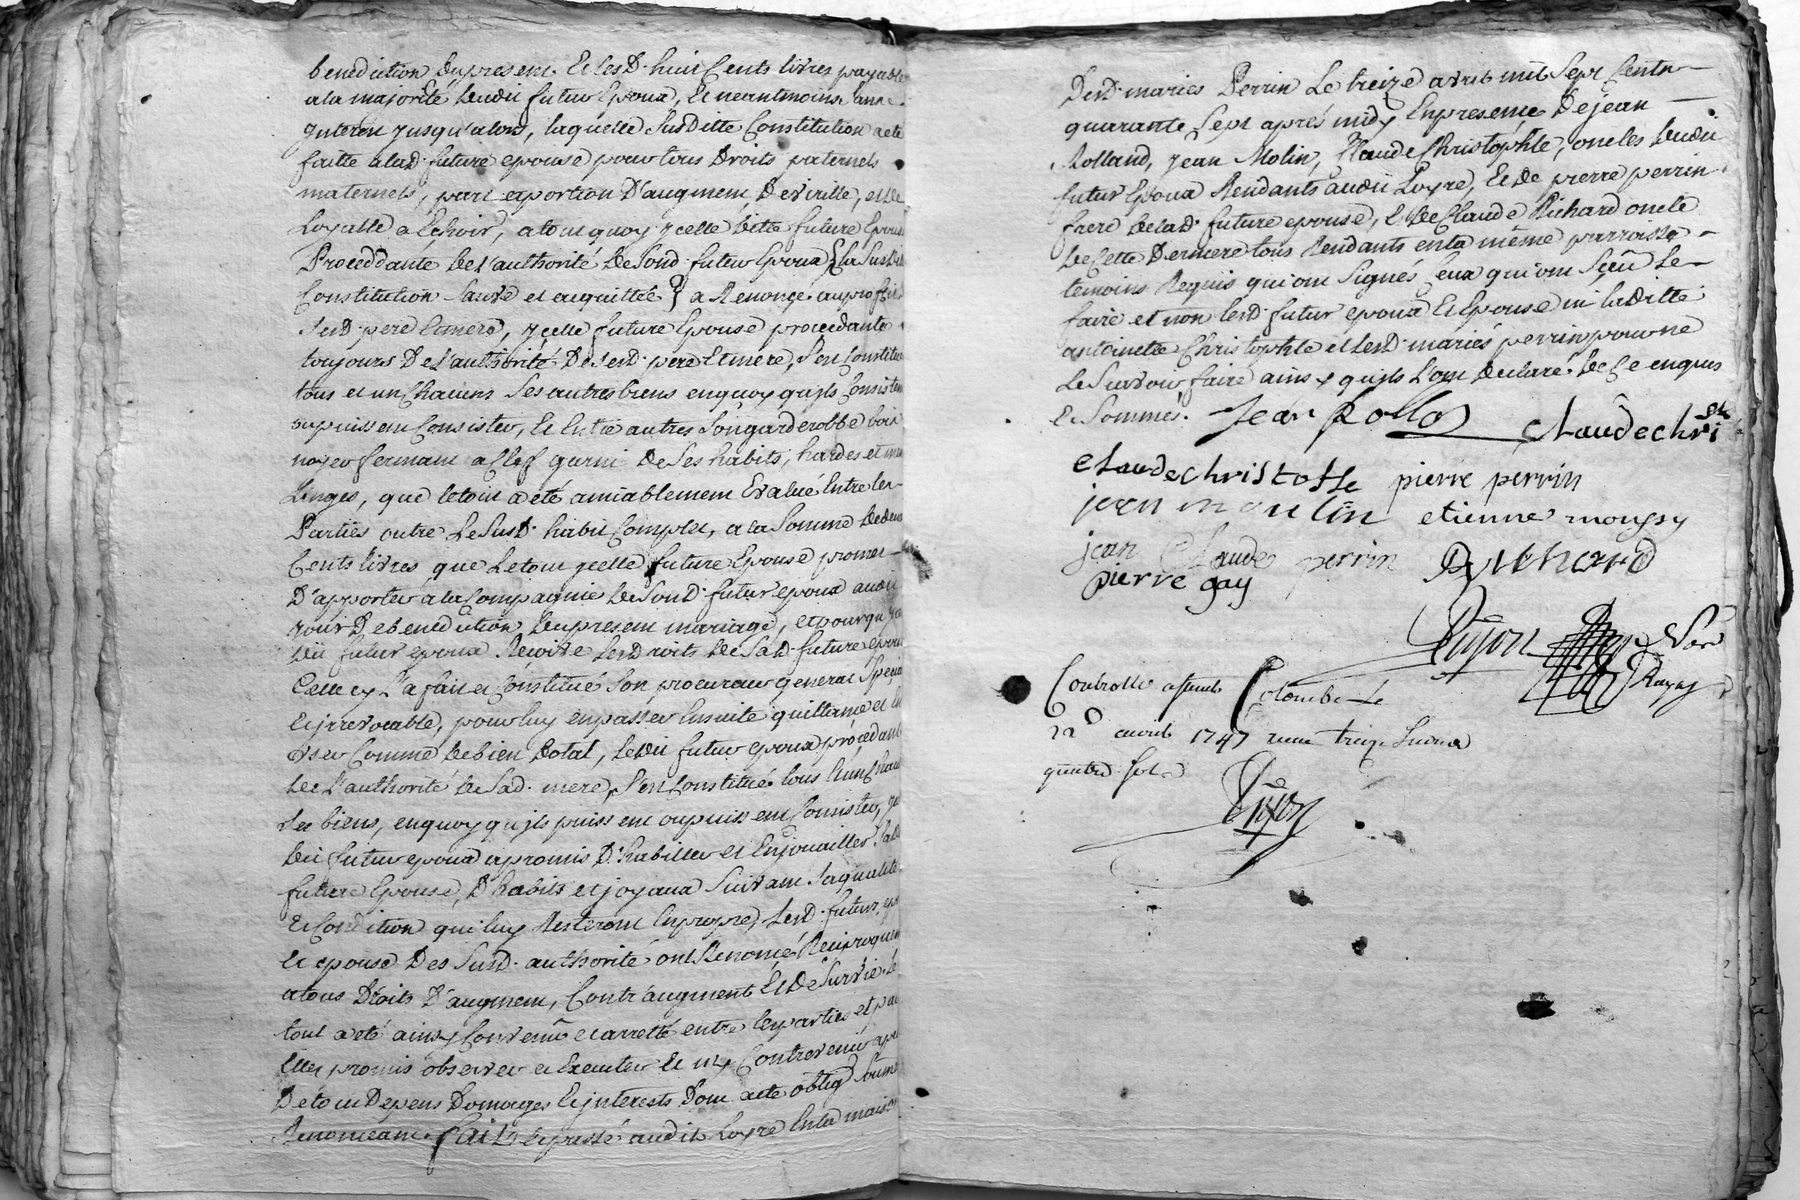 benediction du present. Et les d. huit Cents livres payable
a la majorité dudit futur Epoux, Et neantmoins sans
jnterest jusqu'alors, laquelle Susditte Constitution a eté
faitte a lad. future epouse pour tous Droits paternels
maternels, part et portion D'augment, De virille, et de
Loyalle a Echoir, a tout quoy ycelle ditte future Epouse
Proceddante de l'authorité de Sond. futur Epoux (la Susditte
Constitution Sauve et acquittée) a Renonçé au profit
Send. pere et mere, ycelle future Epouse proceedante
toujours De l'authorité De Send. pere et mere, S'en Constitue
tous et un Chacuns Ses autres biens en quoy qu'jls Consistent
ou puissent Consister, Et Entre autres Son garderobbe bois
noyer fermant a Clef garni de Ses habits, hardes et menus
Linges, que le tout a eté amiablement Evalué Entre les
Parties outre Le Susd. habit Complet, a la Somme de deux
Cents livres que Le tout ycelle future Epouse promet
D'apporter a la Compagnie de Sond. futur epoux audit
jour De benediction du present mariage, et pour qu'ycel
dit futur epoux Reçoive Lesd. droits de Sad. future epouse
Celle cy L'a fait et Constitué Son procureur general Special
et irrevocable, pour luy en passer Ensuite quittance et en
User Comme de bien Dotal, Ledit futur epoux procedant
de l'authorité de Sad. mere, S'en Constitué tous et un Chacuns
Ses biens, en quoy qu'jls puissent ou puissent Consister,
dit futur epoux a promis D'habiller et Enjouailler Sad.
future Epouse, D'habits et joyaux Suivant Sa qualité
et Condition qui luy Resteront En propre, Lesd. futur epoux
et epouse Des Susd. authorité ont Renoncé Reciproquement
a tous Droits D'augment, Contr'augment Et De Survie. Le
tout a eté ainsy Convenu et arretté entre les parties et par
Elles promis observer et Executer Et n'y Contrevenir a peine
De tous Depens Domages Et jnterests Dont acte oblig.ᵒⁿ Soumᵒⁿ
Renonceant. Fait et passé audit Loyre En la maison
Desd. mariés Perrin Le treize avril mil Sept Cents
quarante Sept aprés midy En presence De jean
Rolland, jean Molin, Claude Christophle, oncles dudit
futur Epoux Rendants audit Loyre, Et de pierre perrin
frere de lad. future epouse, Et de Claude Richard oncle
de Cette Derniere tous Rendants en la même parroisse
temoins Requis qui ont Signés Ceux qui ont Sçeû Le
faire et non lesd. futur epoux Et Epouse ni laditte
antoinette Christophle et lesd. mariés perrin pour ne
Le Savoir faire ainsy qu'jls L'ont declaré de Ce enquis
et Sommés. Jean Rollon Claude chri st
claude christofle pierre perrin
jean moulin etienne mougsy
jean Claude perrin Richard
pierre gay
Pujon
Controllé a Sainte Colombe Le
22ᵉ avril 1747 reçu treize livres
quatre Sols
Pujon